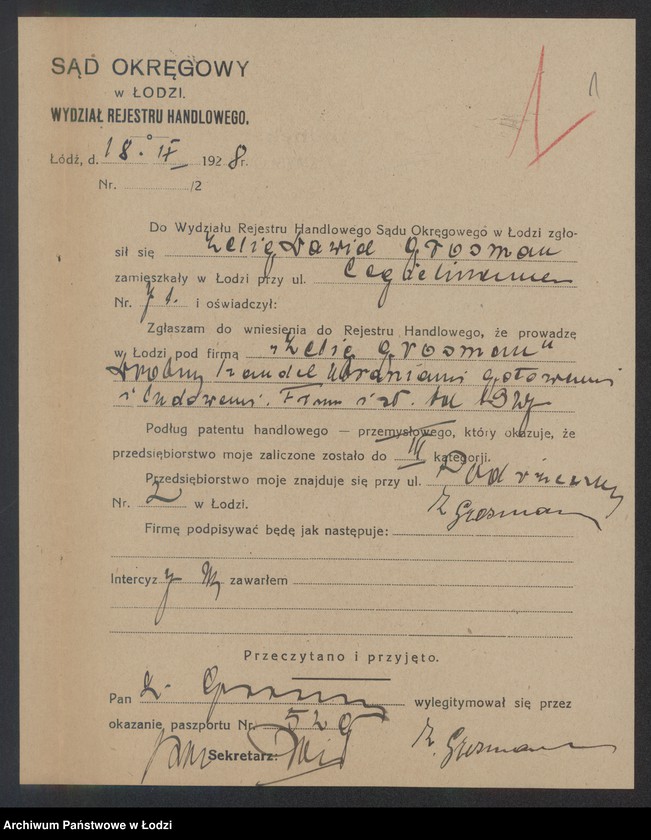 SĄD OKRĘGOWY
w ŁODZI.
WYDZIAŁ REJESTRU HANDLOWEGO.
1
Łódź, d. 18. IX 1928 r.
Nr. /2
Do Wydziału Rejestru Handlowego Sądu Okręgowego w Łodzi zgło-
sił się Zelig Dawid Grosman
zamieszkały w Łodzi przy ul.
Nr. i oświadczył:
Zgłaszam do wniesienia do Rejestru Handlowego, że prowadzę
w Łodzi pod firmą "Zelig Grosman"
Drobny handel ubraniami gotowemi
i Firma
Podług patentu handlowego — przemysłowego, który okazuje, że
przedsiębiorstwo moje zaliczone zostało do III kategorji.
Przedsiębiorstwo moje znajduje się przy ul. Podrzeczny
Nr. 2 w Łodzi.
Z Grosman
Firmę podpisywać będę jak następuje:
Intercyzy zawarłem
Przeczytano i przyjęto.
Pan Z. Grosman wylegitymował się przez
okazanie paszportu Nr. 529
Z. Grosman
Sekretarz:
Archiwum Państwowe w Łodzi